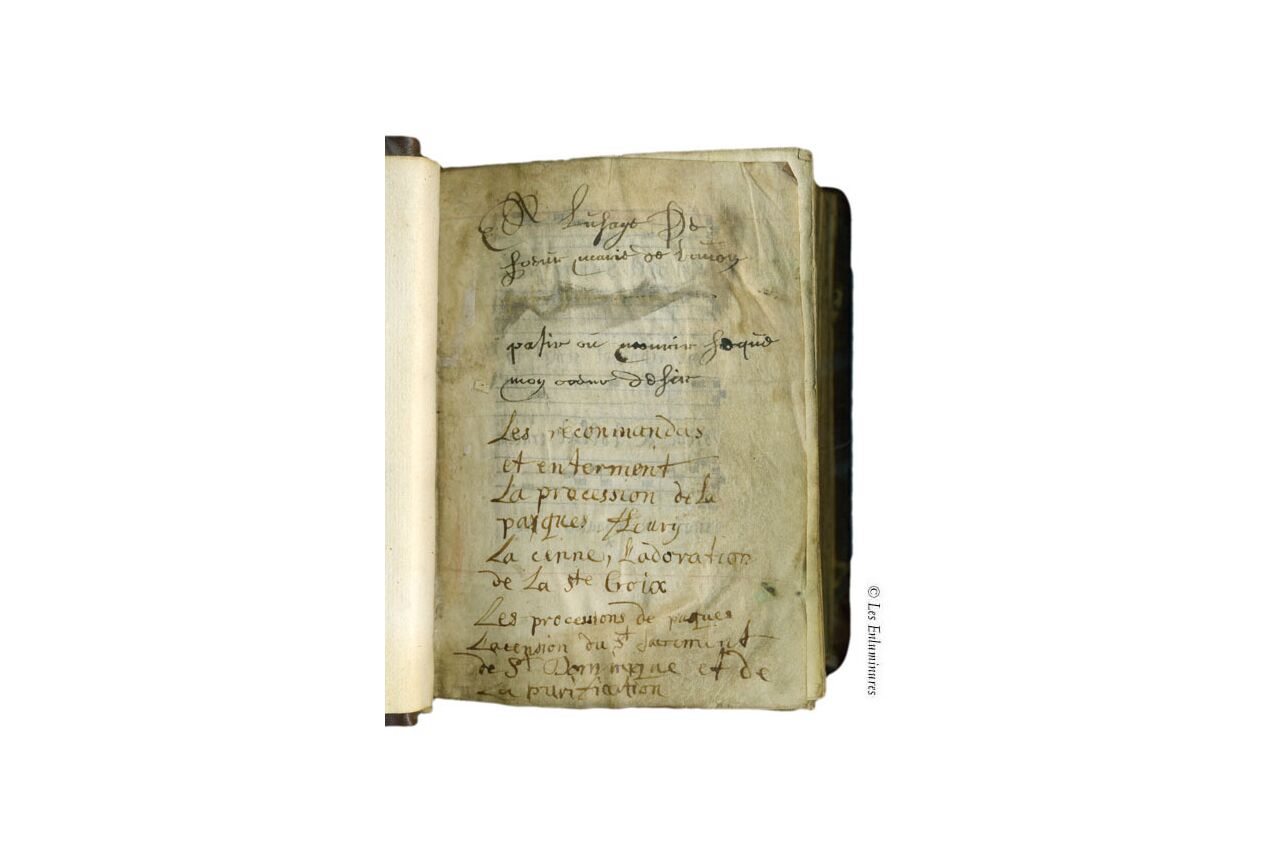 A Lusage De
soeur marie de
pasir ou mourir se que
mon coeur desir
Les recommandas
et enterment
La procession de la
pasques fleury
La cenne, Ladoration
de La ste Croix
Les processions de pasques
Lacension du st sacrement
de st Dominique et de
La purification
© Les Enluminures